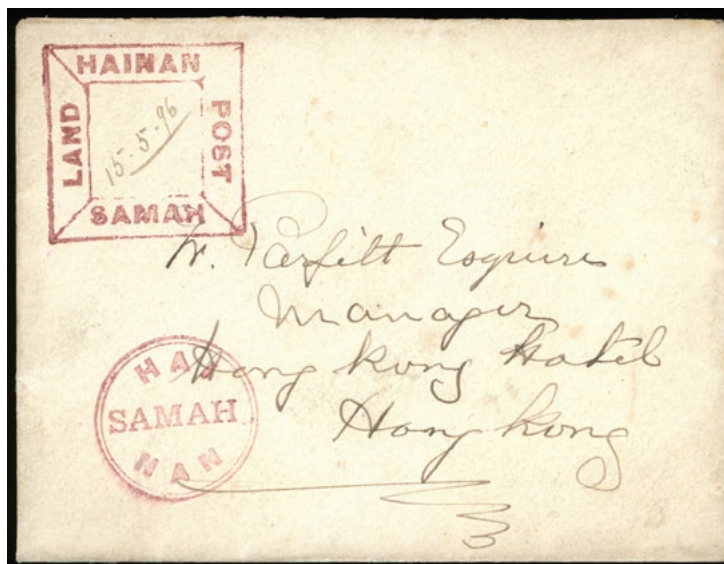 HAINAN
LAND
POST
15-5-96
SAMAH
W. Parfitt Esquire
Manager
Hong Kong Hotel
Hong Kong
HAI
SAMAH
NAN